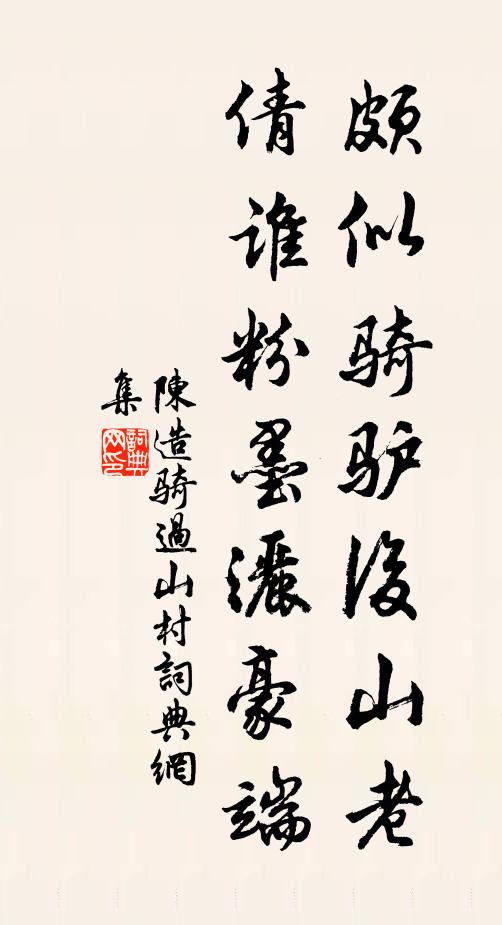 頗似骑驴後山老
倩誰粉墨灑豪端
陳造骑過山村詞典網
集
詞典網印